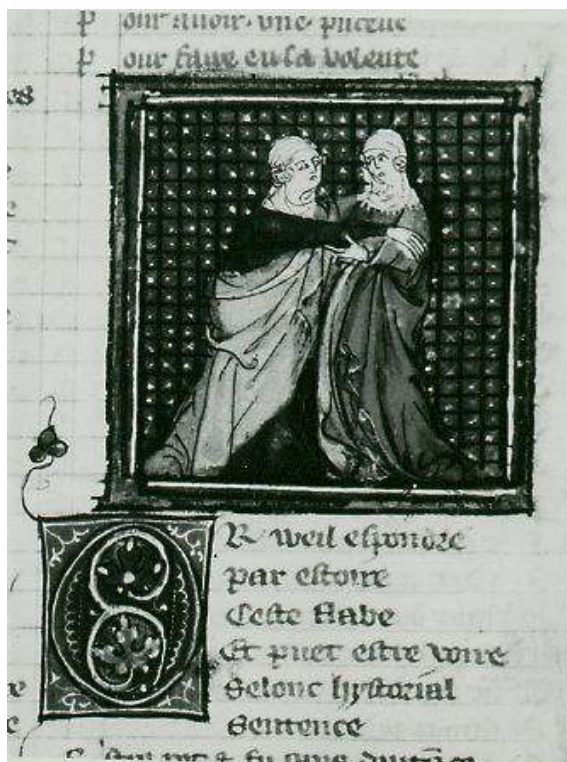 Pour avoir une pucelle
Pour faire en sa volente
OR weil espondre
par estoire
Ceste flabe
Et puet estre voire
Selonc hystorial
Sentence